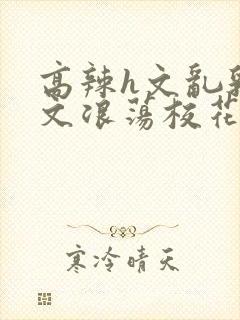 高辣h文乱乳
文浪荡校花
寒冷晴天